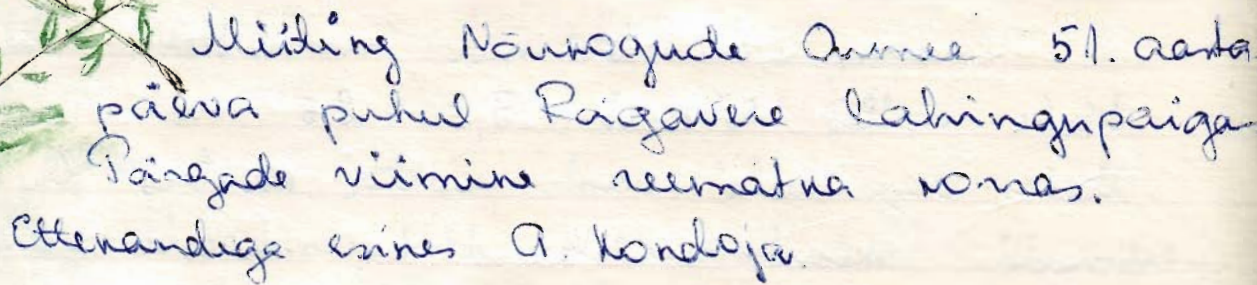 Miiting Nõukogude Armee 51. aasta
päeva puhul Rägavere lahingupaiga
Pärgade viimine reematka korras.
Ettekandega esines A. Kondoja.